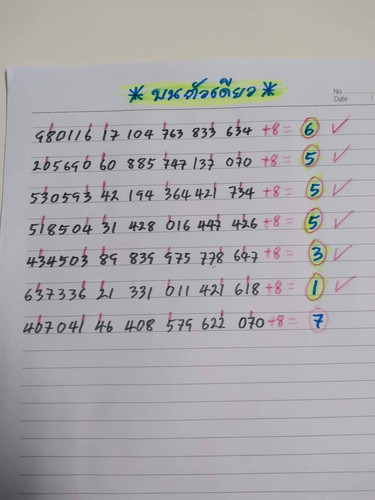 * บนตัวเดียว *
No
Date
980116 17 104 763 833 634 +8 = 6 ✓
205690 60 885 747 137 070 +8 = 5 ✓
530593 42 194 364 421 734 +8 = 5 ✓
518504 31 428 016 447 426 +8 = 5 ✓
434503 89 839 975 778 647 +8 = 3 ✓
637336 21 331 011 421 618 +8 = 1 ✓
407041 46 408 579 622 070 +8 = 7